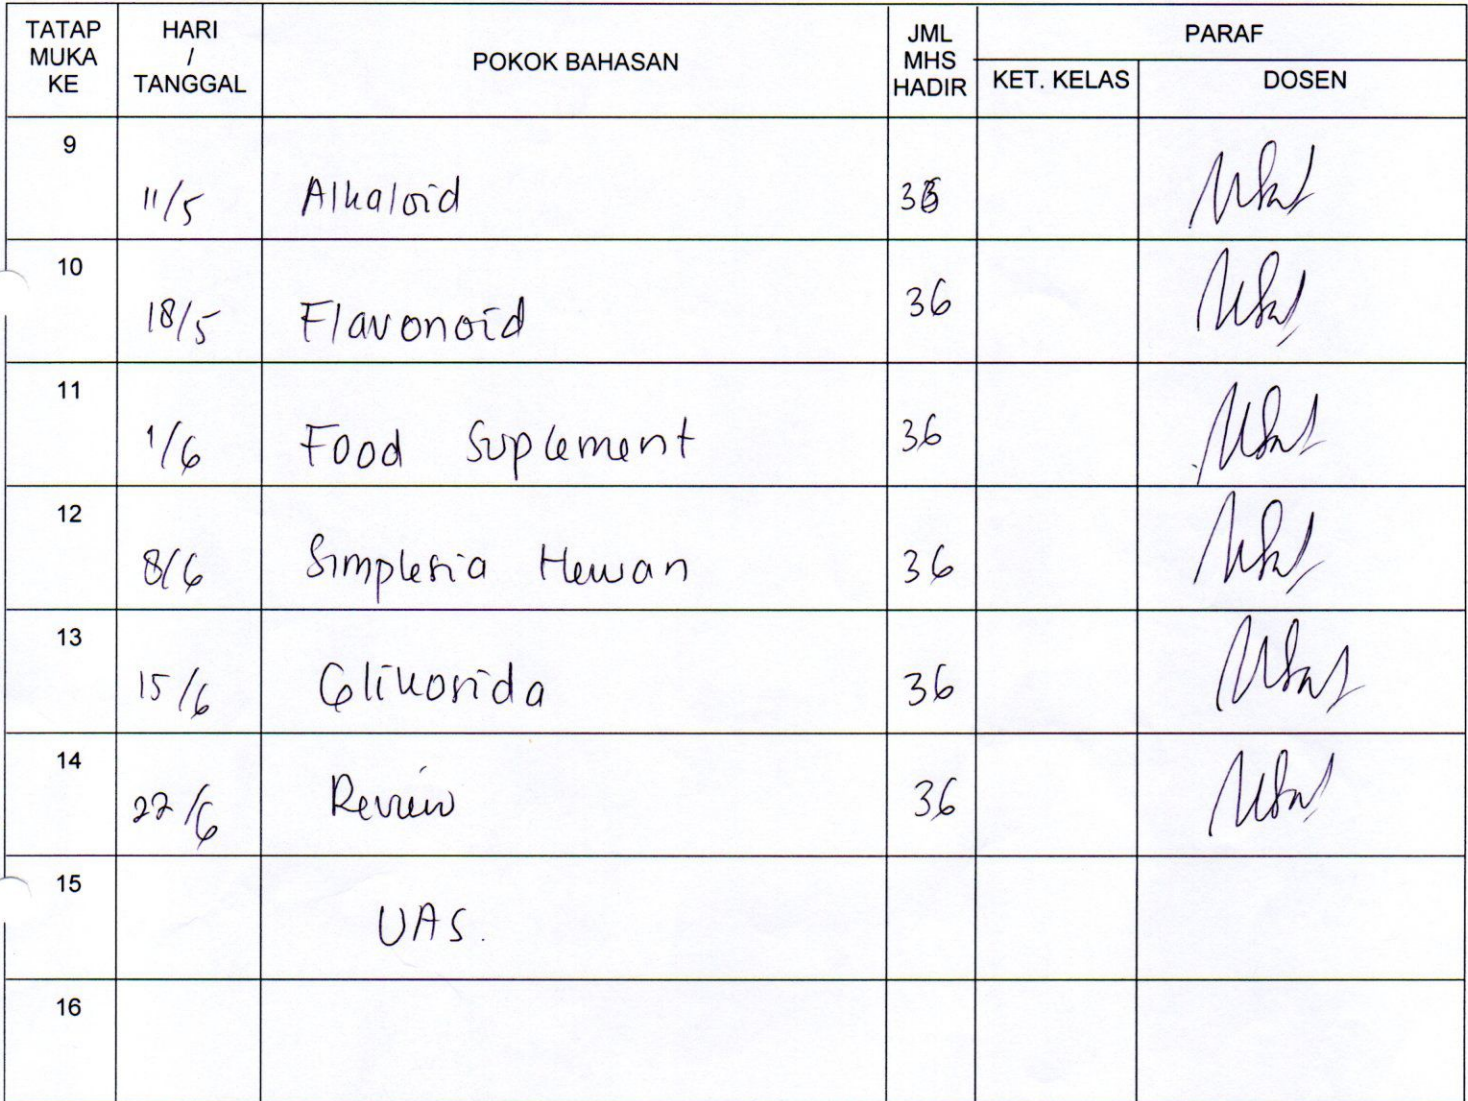 TATAP MUKA KE HARI / TANGGAL POKOK BAHASAN JML MHS HADIR PARAF
KET. KELAS DOSEN
9 11/5 Alkaloid
10 18/5 Flavonoid 36
11 1/6 Food Suplement 36
12 8/6 Simplesia Hewan 36
13 15/6 Glikosida 36
14 22/6 Review 36
15 UAS.
16